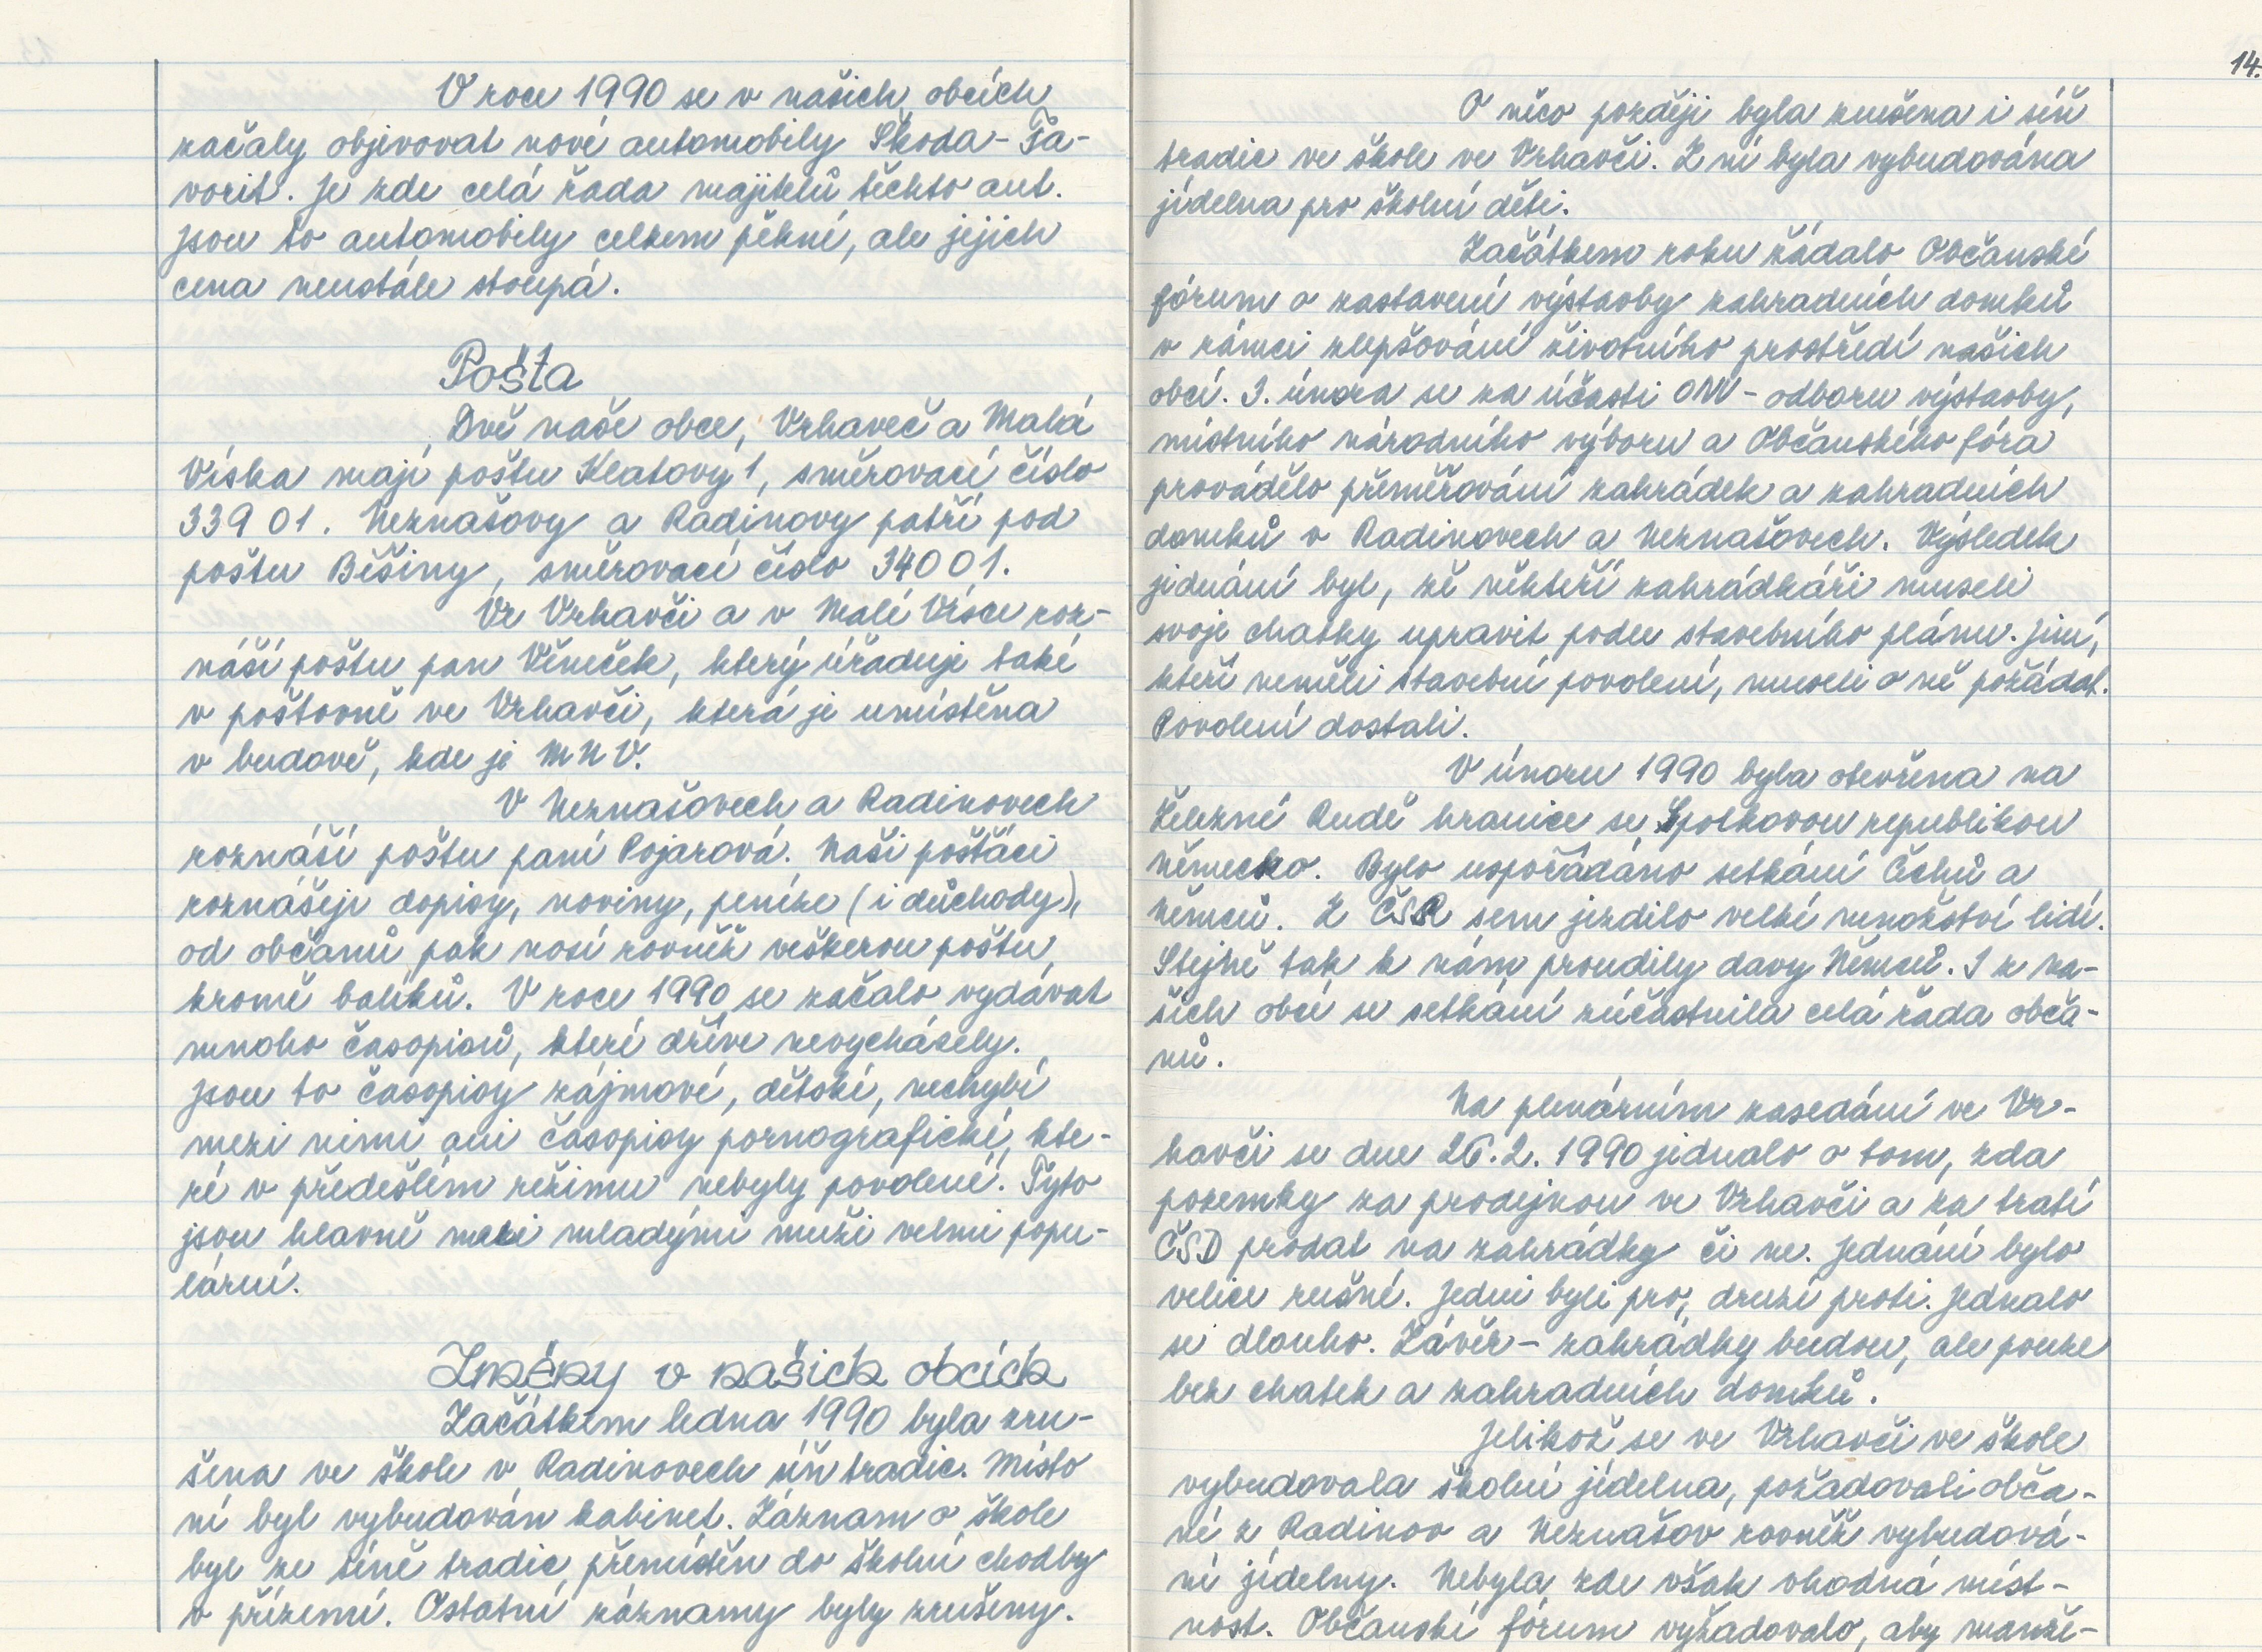 V roce 1990 se v našich obcích
začaly objevovat nové automobily Škoda - Fa-
vorit. Je zde celá řada majitelů těchto aut.
Jsou to automobily celkem pěkné, ale jejich
cena neustále stoupá.
Pošta
Dvě naše obce, Vrhaveč a Malá
Víska mají poštu Klatovy 1, směrovací číslo
339 01. Neznašovy a Radinovy patří pod
poštu Běšiny, směrovací číslo 340 01.
Ve Vrhavči a v Malé Vísce roz-
náší poštu pan Věneček, který úřaduje také
v poštovně ve Vrhavči, která je umístěna
v budově, kde je MNV.
V Neznašovech a Radinovech
roznáší poštu paní Pojarová. Naši pošťáci
roznášejí dopisy, noviny, peníze (i důchody),
od občanů pak nosí rovněž veškerou poštu,
kromě balíků. V roce 1990 se začalo vydávat
mnoho časopisů, které dříve nevycházely.
Jsou to časopisy zájmové, dětské, nechybí
mezi nimi ani časopisy pornografické, kte-
ré v předešlém režimu nebyly povolené. Tyto
jsou hlavně mezi mladými muži velmi popu-
lární.
Změny v našich obcích
Začátkem ledna 1990 byla zru-
šena ve škole v Radinovech síň tradic. Místo
ní byl vybudován kabinet. Záznam o škole
byl ze síně tradic přemístěn do školní chodby
v přízemí. Ostatní záznamy byly zrušeny.
14.
O něco později byla zrušena i síň
tradic ve škole ve Vrhavči. Z ní byla vybudována
jídelna pro školní děti.
Začátkem roku žádalo Občanské
fórum o zastavení výstavby zahradních domků
v rámci zlepšování životního prostředí našich
obcí. 3. února se za účasti ONV - odboru výstavby,
místního národního výboru a Občanského fóra
provádělo přeměřování zahrádek a zahradních
domků v Radinovech a Neznašovech. Výsledek
jednání byl, že někteří zahrádkáři museli
svoje chatky upravit podle stavebního plánu. Jiní,
kteří neměli stavební povolení, museli o ně požádat.
Povolení dostali.
V únoru 1990 byla otevřena na
Železné Rudě hranice se Spolkovou republikou
Německo. Bylo uspořádáno setkání Čechů a
Němců. Z ČSR sem jezdilo velké množství lidí.
Stejně tak k nám proudily davy Němců. I z na-
šich obcí se setkání zúčastnila celá řada obča-
nů.
Na plenárním zasedání ve Vr-
havči se dne 26.2.1990 jednalo o tom, zda
pozemky za prodejnou ve Vrhavči a za tratí
ČSD prodat na zahrádky či ne. Jednání bylo
velice rušné. Jedni byli pro, druzí proti. Jednalo
se dlouho. Závěr - zahrádky budou, ale pouze
bez chatek a zahradních domků.
Jelikož se ve Vrhavči ve škole
vybudovala školní jídelna, požadovali obča-
né z Radinov a Neznašov rovněž vybudová-
ní jídelny. Nebyla zde však vhodná míst-
nost. Občanské fórum vyžadovalo, aby manže-